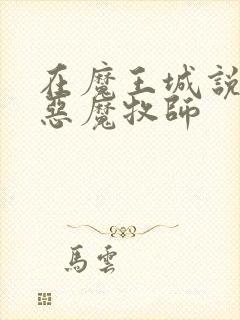 在魔王城說
惡魔牧師
馬雲